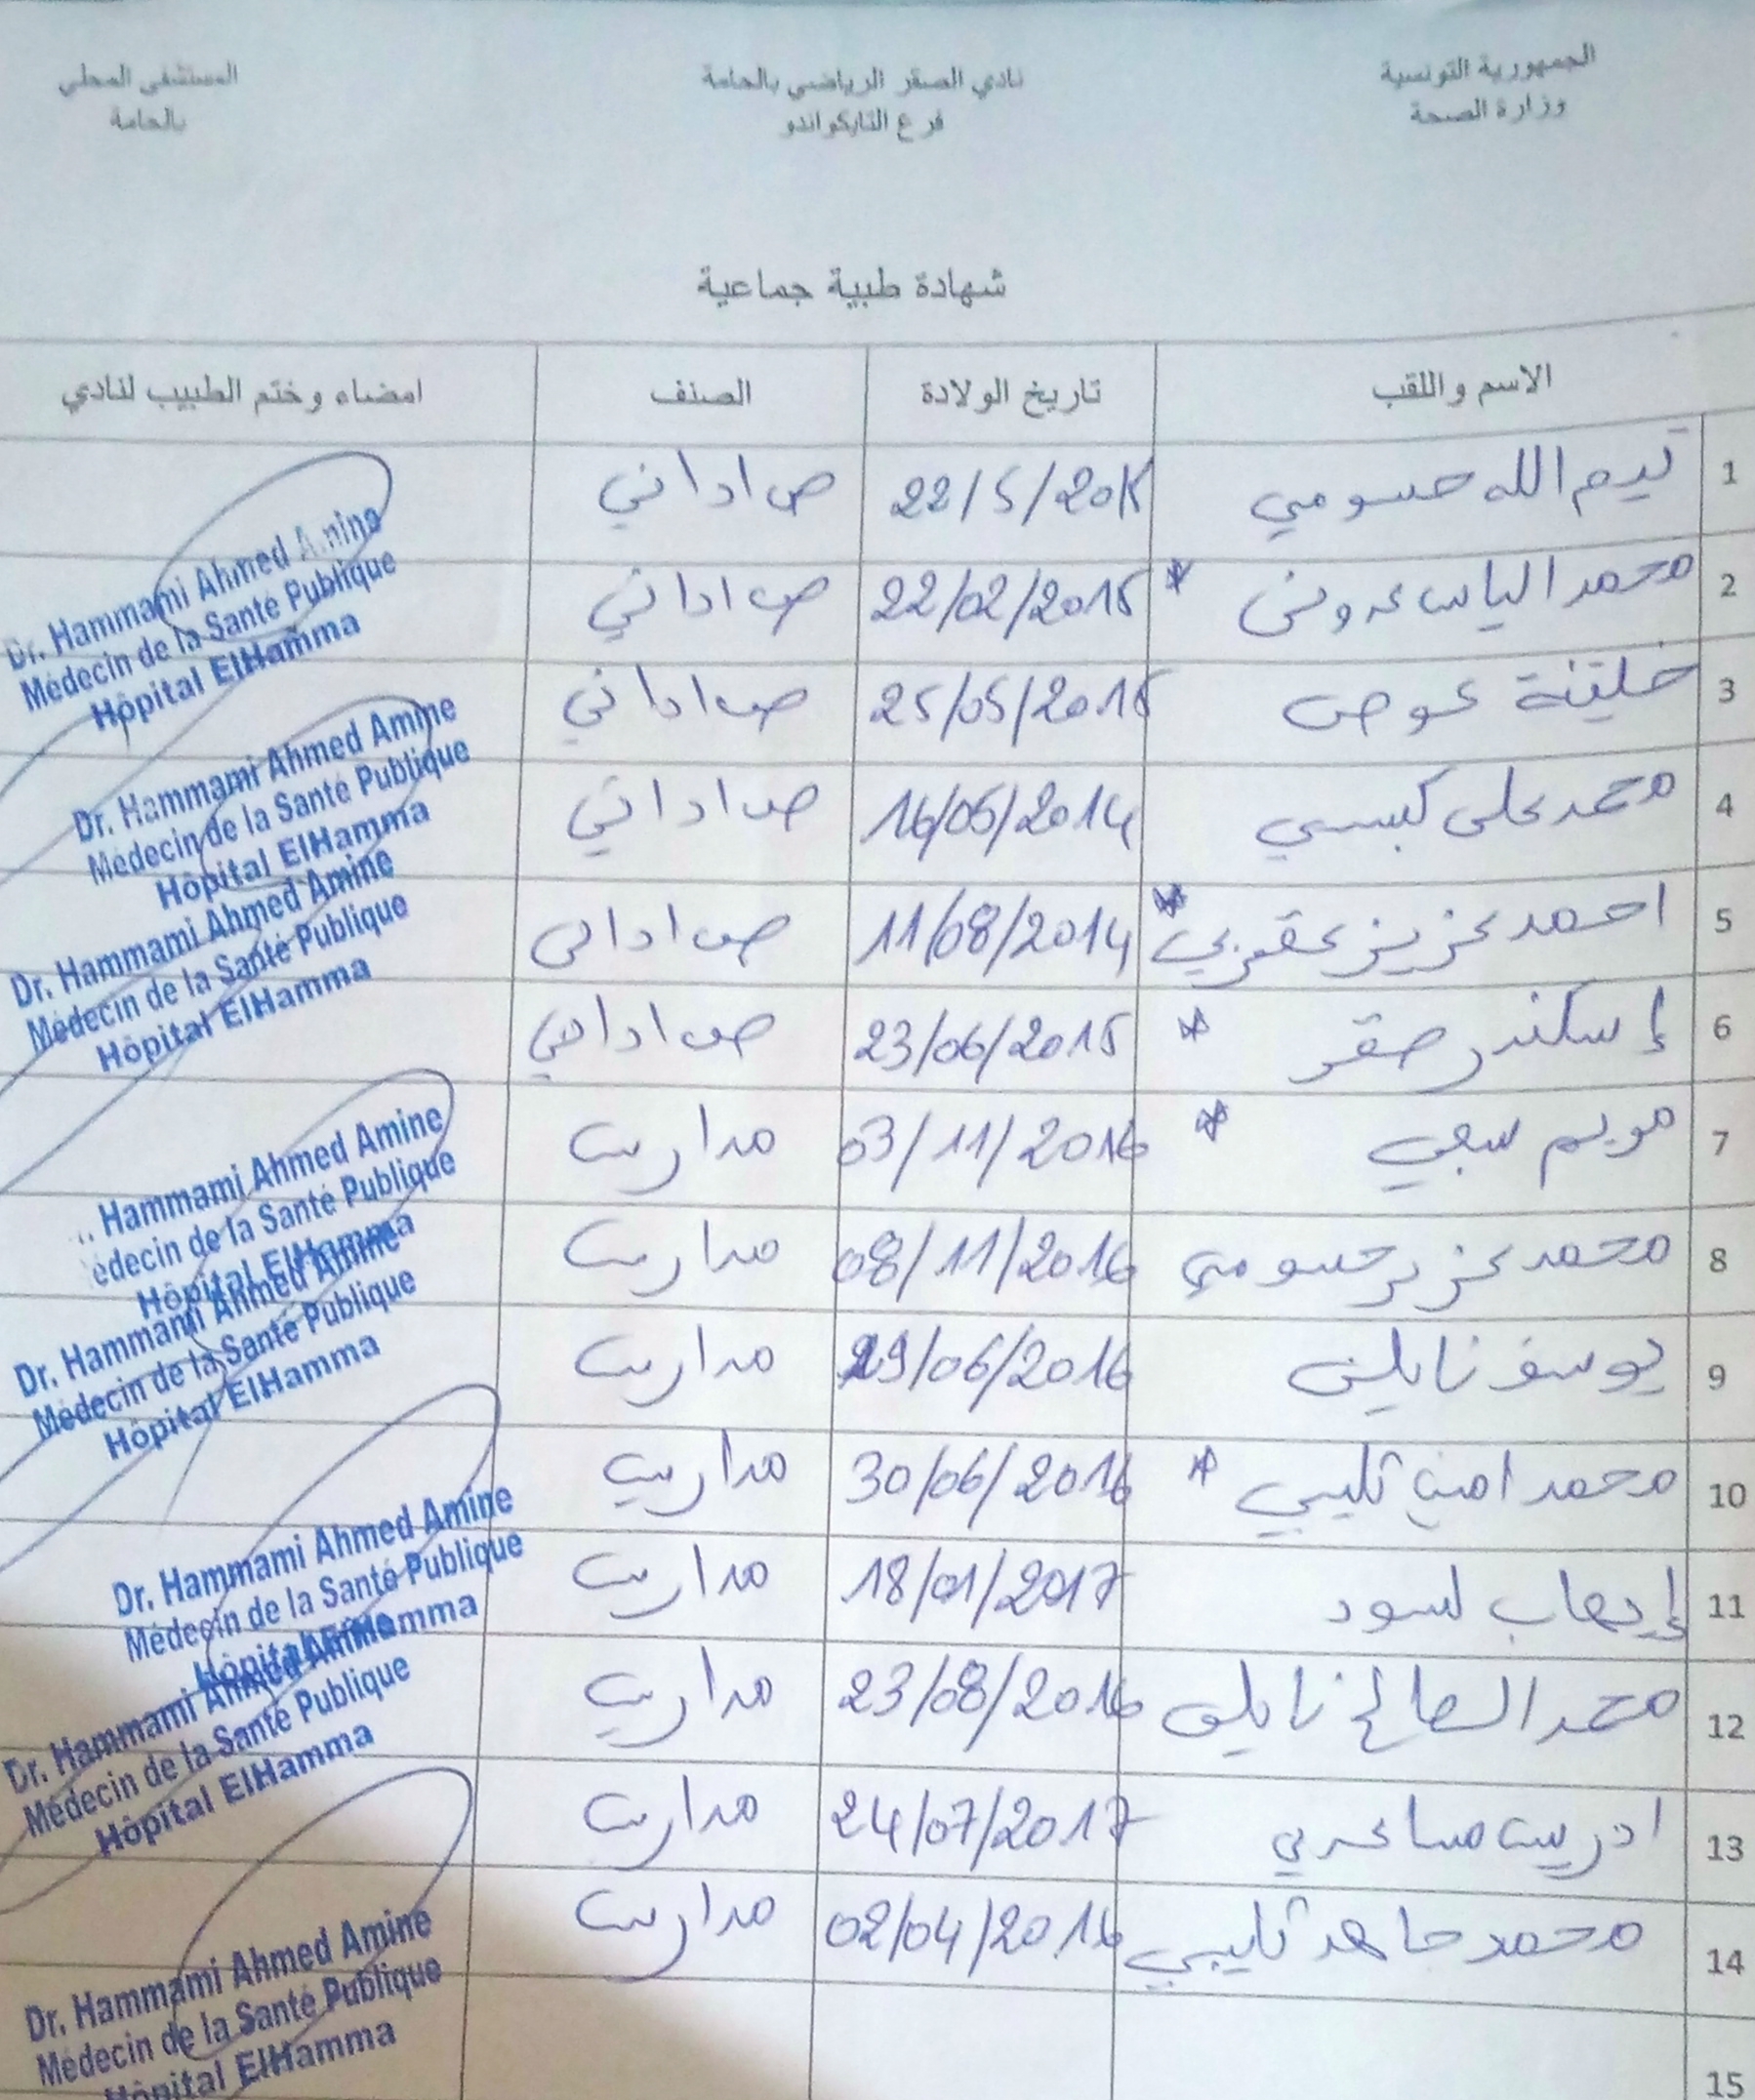 الجمهورية التونسية
وزارة الصحة
نادي الصقر الرياضي بالحامة
فرع التايكواندو
المستشفى المحلي
بالحامة
شهادة طبية جماعية
الاسم واللقب تاريخ الولادة الصنف امضاء وختم الطبيب لنادي
1 تيم الله حسومي 22/5/201 ص اداني
2 محمد الياس * 22/02/2015 ص اداني
3 خليفة عوض 25/05/2015 ص اداني
4 محمد علي كبسي 16/05/2014 ص اداني
5 احمد عزيز عقربي * 11/08/2014 ص اداني
6 إسكندر صقر * 23/06/2015 ص اداني
7 مريم سبعي * 03/11/2016 مداريس
8 محمد عزيز حسومي 08/11/2016 مداريس
9 يوسف نايلي 29/06/2016 مداريس
10 محمد امين تليبي * 30/06/2016 مداريس
11 إيهاب لسود 18/01/2017 مداريس
12 محمد الصالح نايلي 23/08/2016 مداريس
13 ادريس 24/07/2017 مداريس
14 محمد جاهد تليبي 02/04/2016 مداريس
15
Dr. Hammami Ahmed Amine
Médecin de la Santé Publique
Hôpital ElHamma
Dr. Hammami Ahmed Amine
Médecin de la Santé Publique
Hôpital ElHamma
Dr. Hammami Ahmed Amine
Médecin de la Santé Publique
Hôpital ElHamma
Hammami Ahmed Amine
édecin de la Santé Publique
Hôpital ElHamma
Dr. Hammami Ahmed Amine
Médecin de la Santé Publique
Hôpital ElHamma
Dr. Hammami Ahmed Amine
Médecin de la Santé Publique
Hôpital ElHamma
Dr. Hammami Ahmed Amine
Médecin de la Santé Publique
Hôpital ElHamma
Dr. Hammami Ahmed Amine
Médecin de la Santé Publique
Hôpital ElHamma